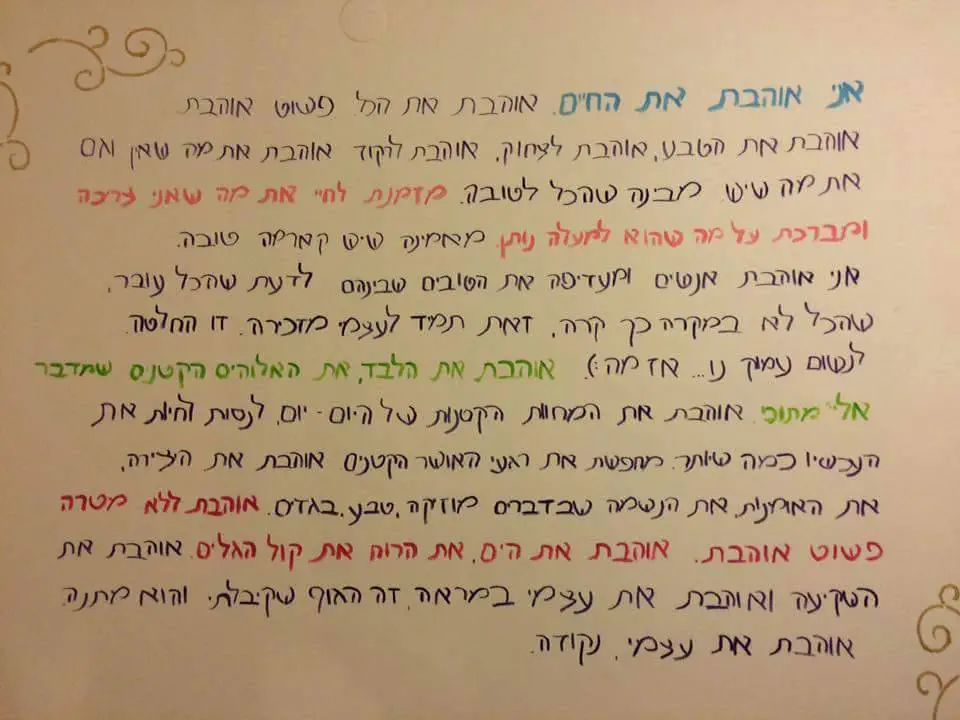 אני אוהבת את החיים. אוהבת את הכל. פשוט אוהבת
אוהבת את הטבע, אוהבת לצחוק, אוהבת לרקוד אוהבת את מה שאין וגם
את מה שיש. מבינה שהכל לטובה. מזמנת לחיי את מה שאני צריכה
ומברכת על מה שהוא למעלה נותן. מאמינה שיש קארמה טובה.
אני אוהבת אנשים ומעדיפה את הטובים שבינהם לדעת שהכל עובר,
שהכל לא במקרה כך קרה, זאת תמיד לעצמי מזכירה. זו החלטה.
לנשום עמוק נו... אז מה :). אוהבת את הלבד, את האלוהים הקטנים שמדבר
אלי מתוכי. אוהבת את המחוות הקטנות של היום-יום, לנסות לחיות את
העכשיו כמה שיותר. מחפשת את רגעי האושר הקטנים אוהבת את היצירה,
את האומנות, את הנשמה שבדברים מוזיקה, טבע, בגדים. אוהבת ללא מטרה
פשוט אוהבת. אוהבת את הים, את הרוח את קול הגלים. אוהבת את
השקיעה ואוהבת את עצמי במראה, זה הגוף שקיבלתי והוא מתנה.
אוהבת את עצמי, נקודה.